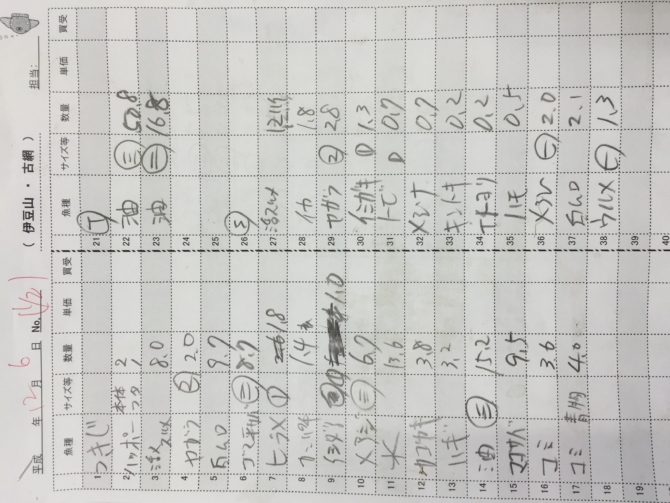 平成 年 12月 6日 No.(1/2) ( 伊豆山 ・ 古網 ) 担当:
魚種 サイズ等 数量 単価 買受
1 つきじ
2 ハッポー 本体 フタ 2
3 活スルメ 8.0
4 ヤガラ ② 2.0
5 ムロ 9.7
6 ゴマサバ ㊂ 8.7
7 ヒラメ ① 1.8
8 1.4
9 1.0
10 メアジ ㊂ 6.7
11 木 13.6
12 3.8
13 ハギ 3.2
14 油 ㊂ 15.2
15 マコサバ 9.5
16 ゴミ 3.6
17 ゴミ 青物 4.0
18
19
20
魚種 サイズ等 数量 単価 買受
21
22 油 ㊂ 50.8
23 油 ㊁ 16.8
24
25
26
27 活スルメ 12.1
28 イカ 1.8
29 ヤガラ ② 2.8
30 イシガキ D 1.3
31 トビ D 0.7
32 メジナ 0.7
33 キントキ 0.2
34 0.2
35 ハモ 0.5
36 ㊀ 2.0
37 ムロ 2.1
38 ウルメ ㊀ 1.3
39
40